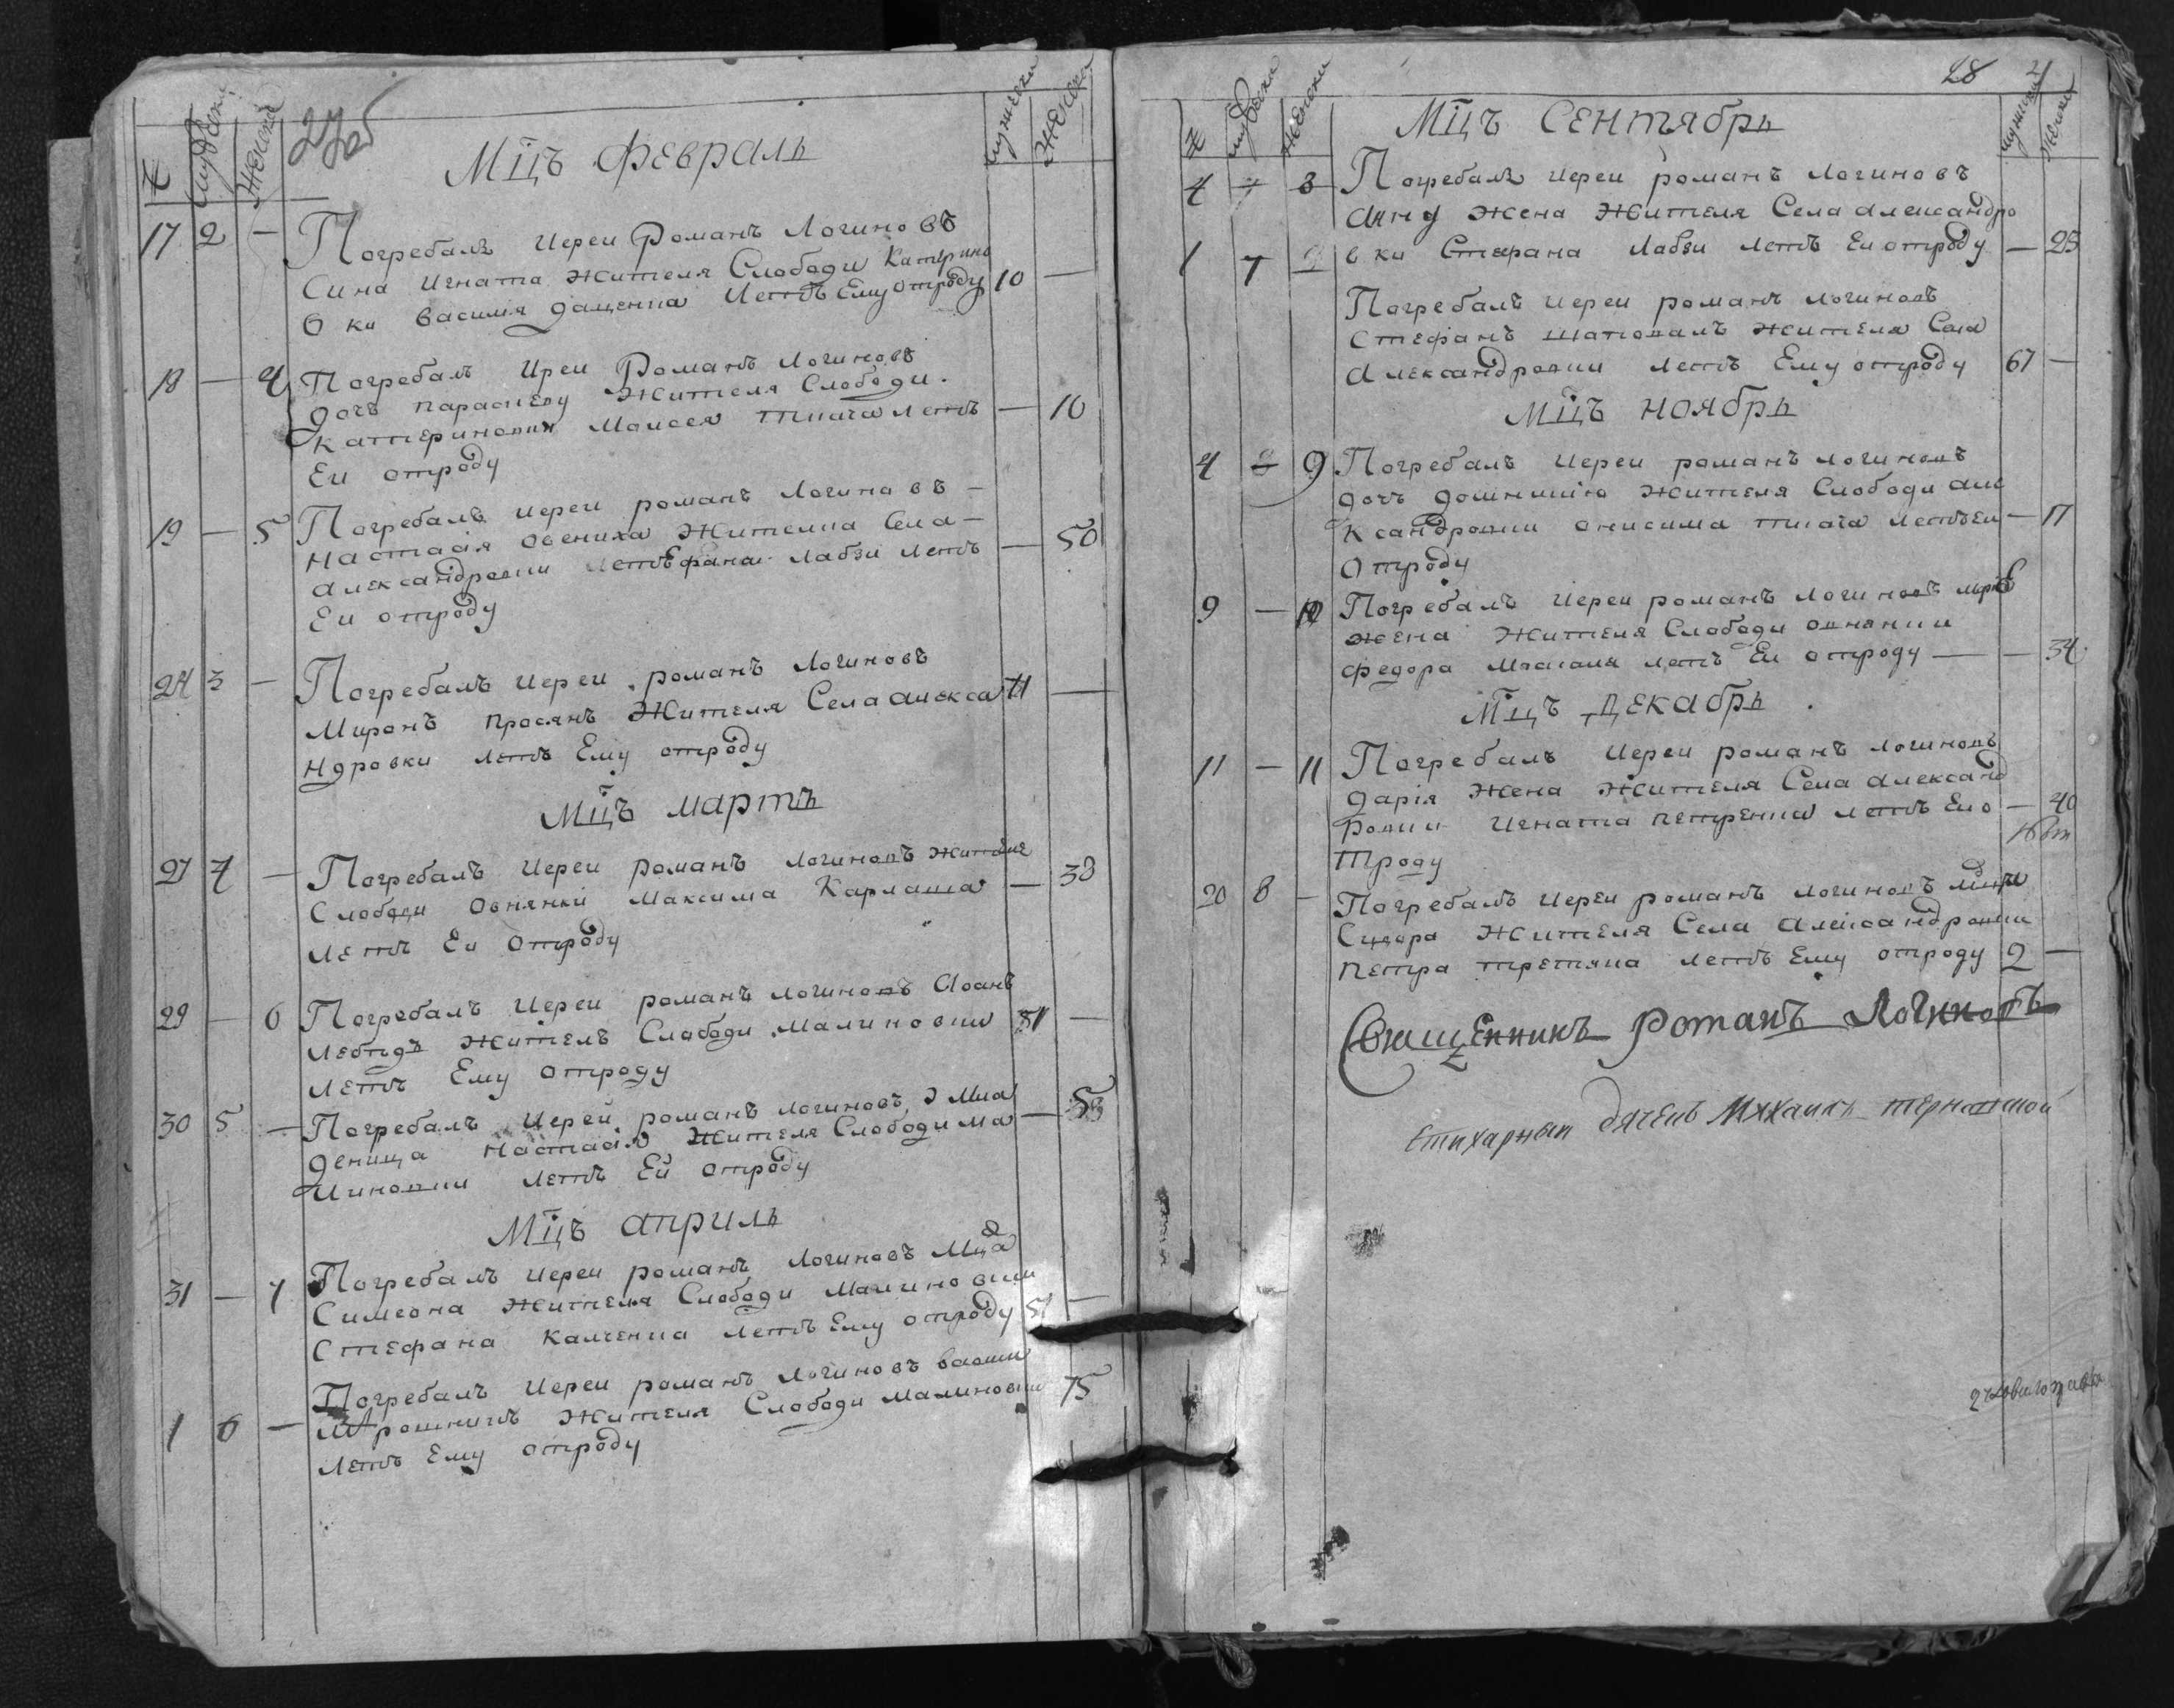 27об
Мцъ Февраль
мужески женски
17 2 — Погребалъ Иереи Романъ Логиновъ
Сина Игната Жителя Слободи Катерино
вки Василия даценка Летъ Ему отроду 10 —
18 — 4 Погребалъ Иреи Романъ Логиновъ
дочь Параскеву Жителя Слободи
Катериновки Моисея Ткача Летъ — 10
Еи отроду
19 — 5 Погребалъ Иереи романъ Логиновъ —
Настасія Жителка Села —
Александровки Лабзи Летъ — 50
Еи отроду
24 3 — Погребалъ Иереи романъ Логиновъ
Миронъ Просянъ Жителя Села Алекса 71 —
ндровки летъ Ему отроду
Мцъ мартъ
27 4 — Погребалъ Иереи романъ Логиновъ Жителя
Слободи Овнянкй Максима Карлаша — 33
Летъ Еи Отроду
29 — 6 Погребалъ Иереи романъ Логиновъ Иоанъ
Лебидь Житель Слободи Малиновки 51 —
Летъ Ему отроду
30 5 — Погребалъ Иерей романъ Логиновъ Мла
деница Настасія Жителя Слободи Ма —
линовки Летъ Ей отроду
Мцъ априль
31 — 7 Погребалъ Иереи романъ Логиновъ
Симеона Жителя Слободи Малиновки
Стефана Калченка Летъ Ему отроду —
1 6 — Погребалъ Иереи романъ Логиновъ
Мирошникъ Жителя Слободи Малиновки 75
Летъ Ему отроду
28
Мцъ Сентябрь
мужески женски
4 — 8 Погребалъ Иереи романъ Логиновъ
Анну жена Жителя Села Александро
вки Стефана Лабзи Летъ Еи отроду — 23
1 7 Погребалъ Иереи романъ Логиновъ
Стефанъ Шаповалъ Жителя Села
Александровки Летъ Ему отроду 67 —
Мцъ ноябрь
4 — 9 Погребалъ Иереи романъ Логиновъ
дочь домникію Жителя Слободи Але
ксандровки Онисима Ткача Летъ Еи — 17
Отроду
9 — 10 Погребалъ Иереи романъ Логиновъ
жена Жителя Слободи Овнянки
Федора Летъ Еи отроду — — 34
Мцъ Декабрь
11 — 11 Погребалъ Иереи романъ Логиновъ
Дарія Жена Жителя Села Александ
ровки Игната Петренка Летъ Еи о — 40
троду
20 8 — Погребалъ Иереи романъ Логиновъ
Сидора Жителя Села Александровки
Петра Третяка Летъ Ему отроду 2 —
Священникъ Романъ Логиновъ
Стихарный дячекъ Михаилъ